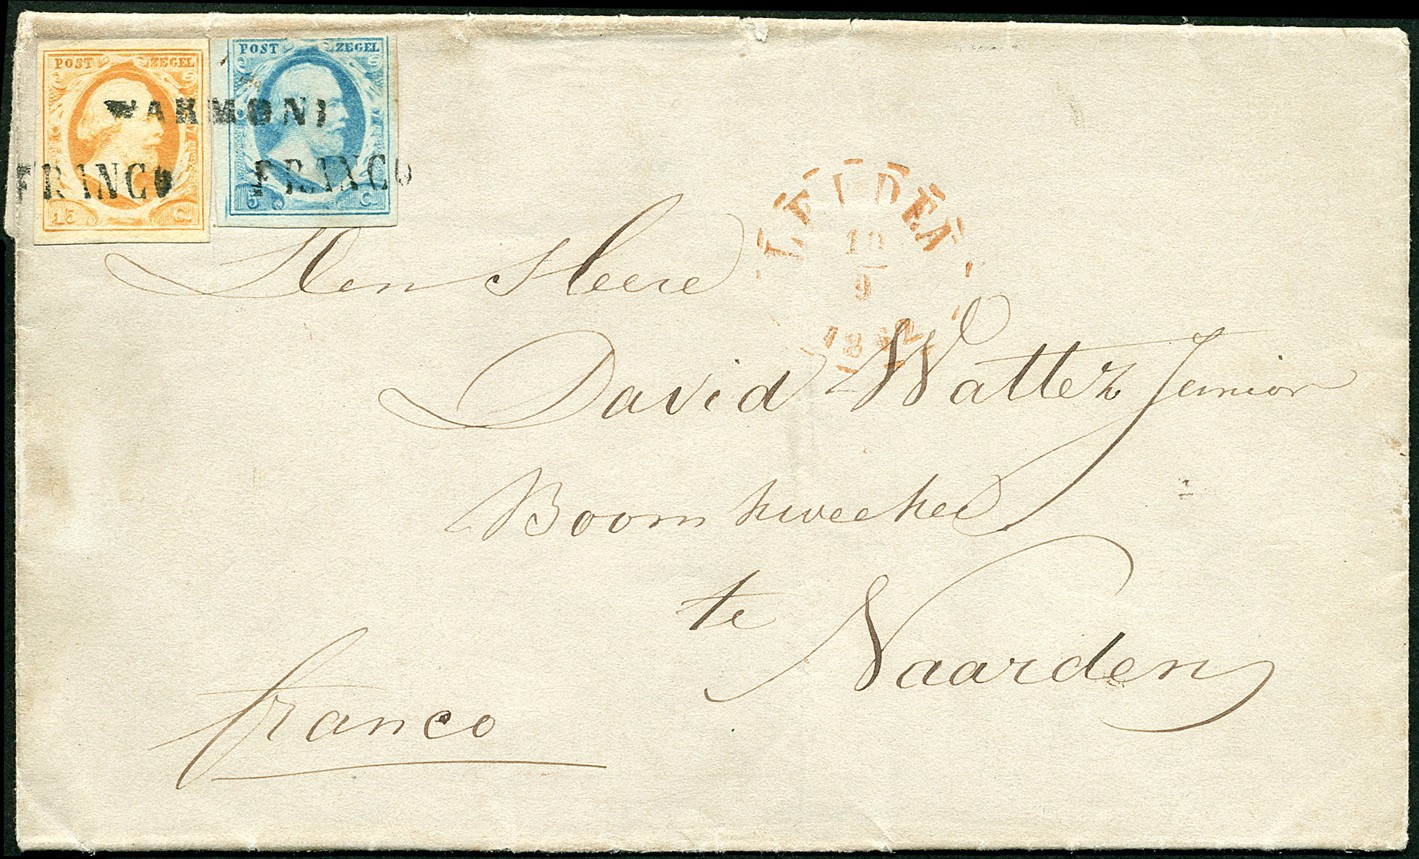 POST ZEGEL
POST ZEGEL
WARMOND
FRANCO
FRANCO
15 C
5 C.
LEIDEN
10
9
Den Heere
David Wattez Junior
Boomkweeker
te
Naarden
franco